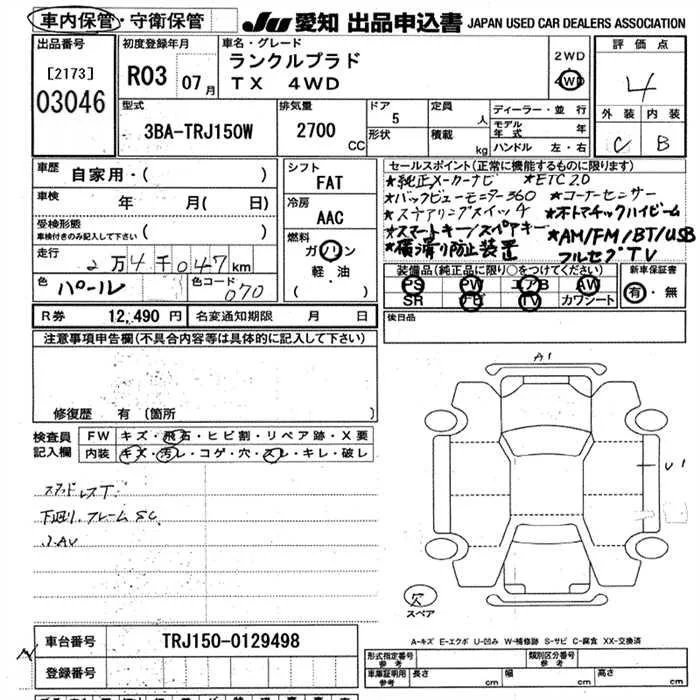 車内保管・守衛保管
JU 愛知 出品申込書 JAPAN USED CAR DEALERS ASSOCIATION
出品番号
[2173]
03046
初度登録年月
R03 07月
車名・グレード
ランクルプラド
TX 4WD
2WD
4WD
評価点
4
外装 内装
C B
型式
3BA-TRJ150W
排気量
2700 CC
ドア
5
形状
定員
人
積載
kg
ディーラー・並行
モデル年式 年
ハンドル 左・右
車歴
自家用・( )
車検
年 月( 日)
受検形態
車検付きのみ記入して下さい ( )
走行
2万4千047km
色
パール
色コード
070
シフト
FAT
冷房
AAC
燃料
ガソリン
軽・油
( )
セールスポイント(正常に機能するものに限ります)
★純正メーカーナビ ★ETC2.0
★バックビューモニター360 ★コーナーセンサー
★ステアリングスイッチ ★オートマチックハイビーム
★スマートキー/スペアキー ★AM/FM/BT/USB
★横滑り防止装置 フルセグTV
装備品(純正品に限り○をつけてください)
PS PW エアB AW
SR ナビ TV カワシート
新車保証書
有・無
R券 12,490 円 名変通知期限 月 日
後日品
注意事項申告欄(不具合内容等は具体的に記入して下さい)
修復歴 有〔箇所
検査員
記入欄
FW キズ・飛石・ヒビ割・リペア跡・X要
内装 キズ・汚レ・コゲ・穴・スレ・キレ・破レ
スタッドレスT
下廻り、フレームSC
A1
U1
欠
スペア
A-キズ E-エクボ U-凹み W-補修跡 S-サビ C-腐食 XX-交換済
車台番号 TRJ150-0129498
登録番号
形式指定番号
参考
類別区分番号
参考
車庫証明用
参考
長さ cm 幅 cm 高さ cm